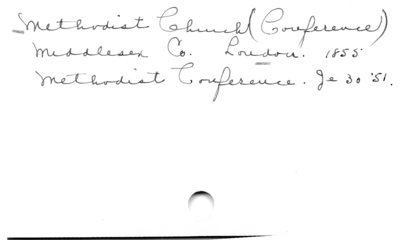 Methodist Church (Conference)
Middlesex Co. London. 1855
Methodist Conference. Je 30 '51.